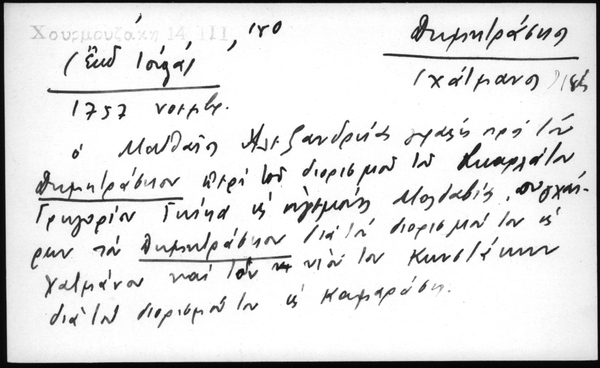 Χουρμουζάκη 14 III, 170
(Ἐκδ Ἰόργα)
Δημητράσκης
(χάτμανος)
1757 νοεμβρ.
ὁ Ματθαῖος Ἀλεξανδρείας γράφει πρὸς τὸν
Δημητράσκον περὶ τοῦ διορισμοῦ τοῦ Σκαρλάτου
Γρηγορίου Γκίκα ὡς ἡγεμόνος Μολδαβίας, συγχαί-
ρων τὸν Δημητράσκον διὰ τὸν διορισμόν του ὡς
χατμάνου καὶ τὸν υἱόν του Κωνστάκην
διὰ τοῦ διορισμοῦ του ὡς καμαράση.